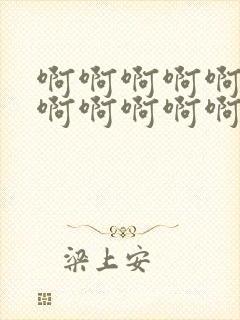 啊啊啊啊啊
啊啊啊啊啊
梁上安